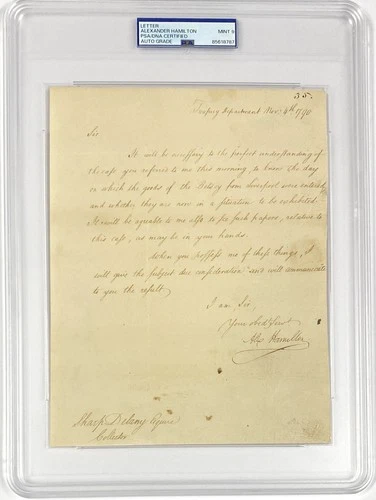 LETTER
ALEXANDER HAMILTON
PSA/DNA CERTIFIED
AUTO GRADE
MINT 9
PSA
85616787
35.
Treasury Department Nov. 4th 1790
Sir
It will be necessary to the perfect understanding of
the case you referred to me this morning, to know the day
on which the goods of the Betsey from Liverpool were entered
and whether they are now in a situation to be exhibited.
It will be agreeable to me also to see such papers, relative to
this case, as may be in your hands.
When you possess me of these things, I
will give the subject due consideration and will communicate
to you the result.
I am Sir,
Your Obed Servt
Alex Hamilton
Sharp Delany Esquire
Collector